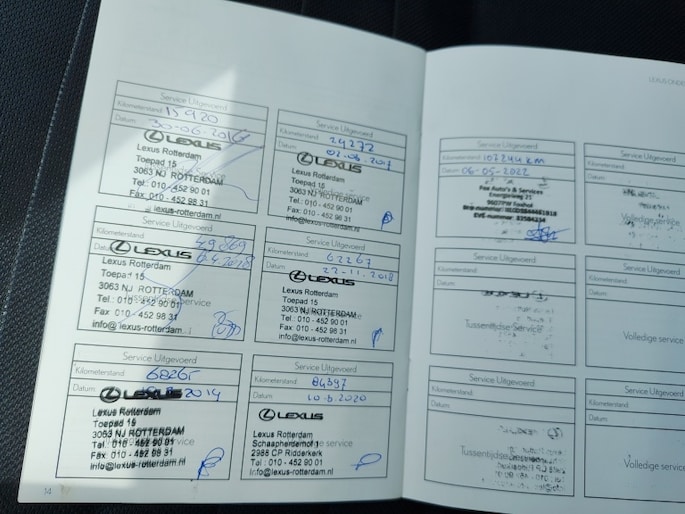 Service Uitgevoerd
Kilometerstand: 15920
Datum: 30-06-2016
LEXUS
Lexus Rotterdam
Toepad 15
3063 NJ ROTTERDAM
Tel.: 010 - 452 90 01
Fax: 010 - 452 98 31
lexus-rotterdam.nl
Service Uitgevoerd
Kilometerstand: 24272
Datum: 02.06.2017
LEXUS
Lexus Rotterdam
Toepad 15
3063 NJ ROTTERDAM
Tel.: 010 - 452 90 01
Fax: 010 - 452 98 31
info@lexus-rotterdam.nl
Service Uitgevoerd
Kilometerstand: 49869
Datum: 2018
LEXUS
Lexus Rotterdam
Toepad 15
3063 NJ ROTTERDAM
Tel.: 010 - 452 90 01
Fax 010 - 452 98 31
info@lexus-rotterdam.nl
Service Uitgevoerd
Kilometerstand: 62267
Datum: 22-11.2018
LEXUS
Lexus Rotterdam
Toepad 15
3063 NJ ROTTERDAM
Tel.: 010 - 452 90 01
Fax: 010 - 452 98 31
info@lexus-rotterdam.nl
Service Uitgevoerd
Kilometerstand: 68265
Datum:
LEXUS
Lexus Rotterdam
Toepad 15
3063 NJ ROTTERDAM
Tel.: 010 - 452 90 01
Fax: 010 - 452 98 31
info@lexus-rotterdam.nl
Service Uitgevoerd
Kilometerstand: 84397
Datum: 10.6.2020
LEXUS
Lexus Rotterdam
Schaapherderhof 1
2988 CP Ridderkerk
Tel.: 010 - 452 90 01
info@lexus-rotterdam.nl
14
Service Uitgevoerd
Kilometerstand: 102244 km
Datum: 06-05-2022
Fee Auto's & Services
Energieweg 21
Service Uitgevoerd
Kilometerstand:
Datum:
Volledige service
Service Uitgevoerd
Kilometerstand:
Datum:
Tussentijdse Service
Service
Kilometerstand:
Datum:
Volledige service
Service Uitgevoerd
Kilometerstand:
Datum:
Tussentijdse
Service
Kilometerstand:
Datum:
Volledige service